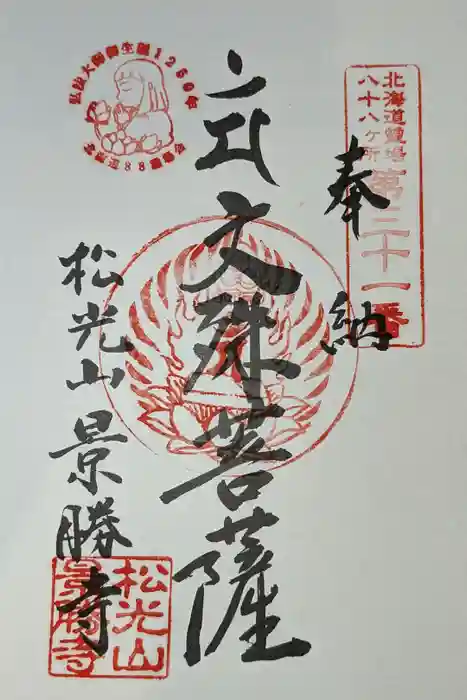 北海道霊場
八十八ヶ所
第三十一番
奉納
文殊菩薩
松光山
景勝寺
弘法大師御生誕1250年
松光山
景勝寺